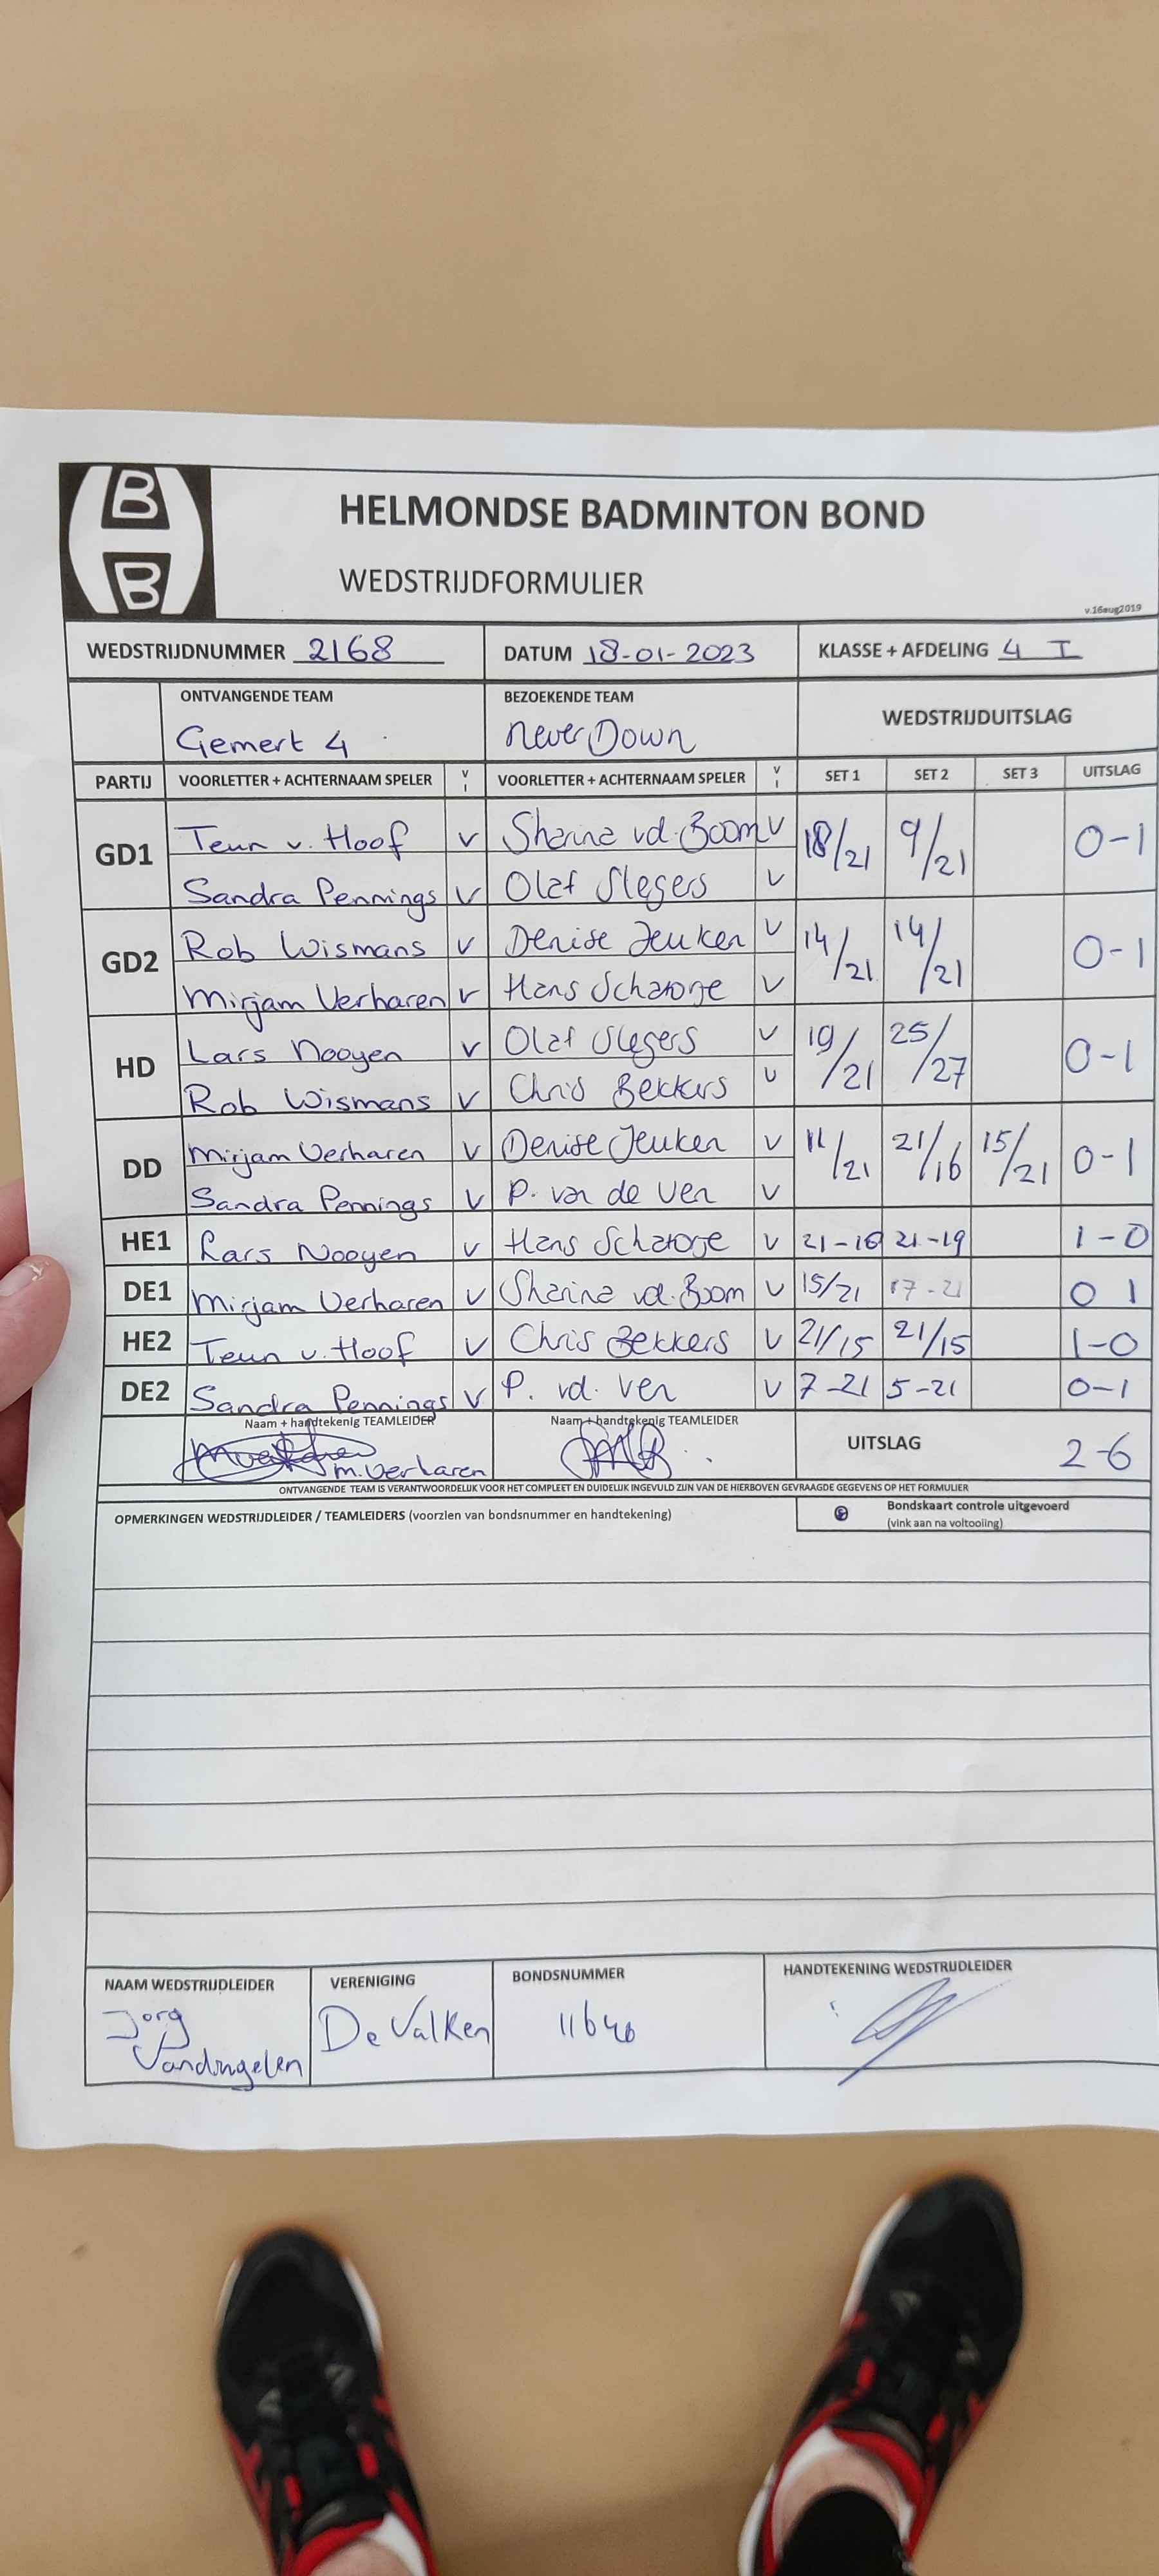 B
B
HELMONDSE BADMINTON BOND
WEDSTRIJDFORMULIER
v.16aug2019
WEDSTRIJDNUMMER 2168 DATUM 18-01-2023 KLASSE + AFDELING 4 I
ONTVANGENDE TEAM BEZOEKENDE TEAM WEDSTRIJDUITSLAG
Gemert 4 never Down
PARTIJ VOORLETTER + ACHTERNAAM SPELER V I VOORLETTER + ACHTERNAAM SPELER V I SET 1 SET 2 SET 3 UITSLAG
GD1 Teun v. Hoof v Sharina vd. Boom v 18/21 9/21 0-1
Sandra Pennings v Olaf Slegers v
GD2 Rob Wismans v Denise Jeuken v 14/21 14/21 0-1
Mirjam Verharen v Hans v
HD Lars Nooyen v Olaf Slegers v 19/21 25/27 0-1
Rob Wismans v Chris Bekkers v
DD Mirjam Verharen v Denise Jeuken v 21 21/16 15/21 0-1
Sandra Pennings v P. van de Ven v
HE1 Lars Nooyen v Hans v 21- 21-19 1-0
DE1 Mirjam Verharen v Sharina vd. Boom v 15/21 17-21 0 1
HE2 Teun v. Hoof v Chris Bekkers v 21/15 21/15 1-0
DE2 Sandra Pennings v P. vd. Ven v 7-21 5-21 0-1
Naam + handtekenig TEAMLEIDER Naam + handtekenig TEAMLEIDER UITSLAG 2-6
m. Verharen
ONTVANGENDE TEAM IS VERANTWOORDELIJK VOOR HET COMPLEET EN DUIDELIJK INGEVULD ZIJN VAN DE HIERBOVEN GEVRAAGDE GEGEVENS OP HET FORMULIER
OPMERKINGEN WEDSTRIJDLEIDER / TEAMLEIDERS (voorzien van bondsnummer en handtekening) Bondskaart controle uitgevoerd
(vink aan na voltooiing)
NAAM WEDSTRIJDLEIDER VERENIGING BONDSNUMMER HANDTEKENING WEDSTRIJDLEIDER
Jorg De Valken 11640